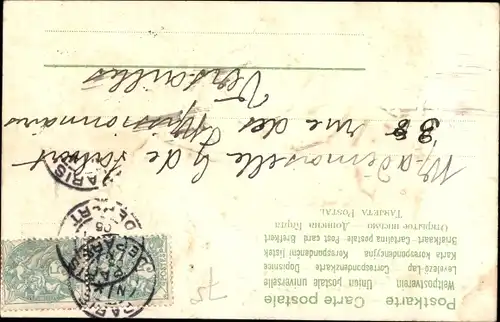 Postkarte Carte postale
Weltpostverein Union postale universelle
Levelező-Lap Correspondenzkarte Dopisnice
Karta korespondencyjna Korespondenční lístek
Briefkaart Cartolina postale Post card Brefkort
Открытое письмо Дописна Карта
TARJETA POSTAL
Mademoiselle G de
38 rue des Missionnaires
Versailles
PARIS
DEPART
PARIS
DEPART
75